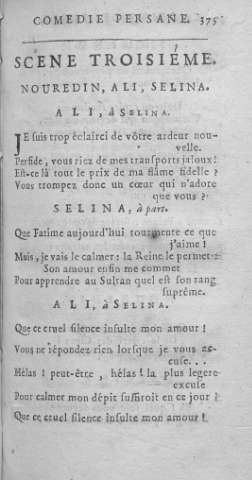 COMEDIE PERSANE. 375
SCÉNE TROISIÉME.
NOUREDIN, ALI, SELINA.
ALI, à SELINA.
JE suis trop éclairci de vôtre ardeur nou-
velle.
Perfide, vous riez de mes transports jaloux!
Est-ce là tout le prix de ma flâme fidelle?
Vous trompez donc un cœur qui n'adore
que vous?
SELINA, à part.
Que Fatime aujourd'hui tourmente ce que
j'aime!
Mais, je vais le calmer: la Reine le permet:
Son amour enfin me commet
Pour apprendre au Sultan quel est son rang
suprême.
ALI, à SELINA.
Que ce cruel silence insulte mon amour!
Vous ne répondez rien lorsque je vous ac-
cuse...
Hélas! peut-être, hélas! la plus legere
excuse
Pour calmer mon dépit suffiroit en ce jour?
Que ce cruel silence insulte mon amour!